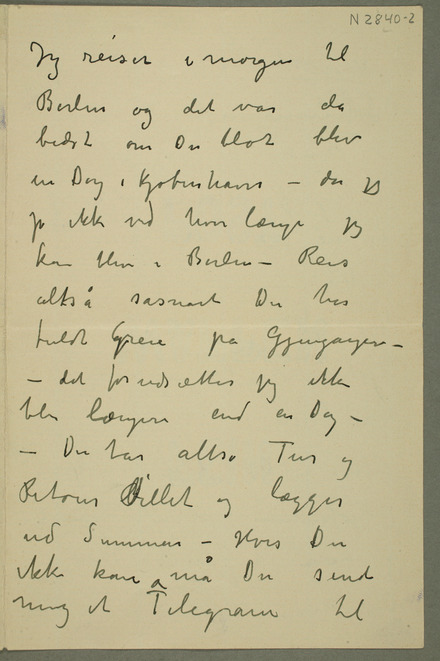 N 2840-2
Jeg reiser i morgen til
Berlin og det var da
bedst om Du blot blev
en Dag i Kjøbenhavn – da jeg
jo ikke ved hvor længe jeg
kan blive i Berlin – Reis
altså såsnart Du har
fuldt Greie på Gjengangere –
– det forudsættes jeg ikke
blir længere end en Dag –
– Du tar altså Tur og
Retour Billet og lægger
ud Summen – Hvis Du
ikke kan må Du sende
mig et Telegram til